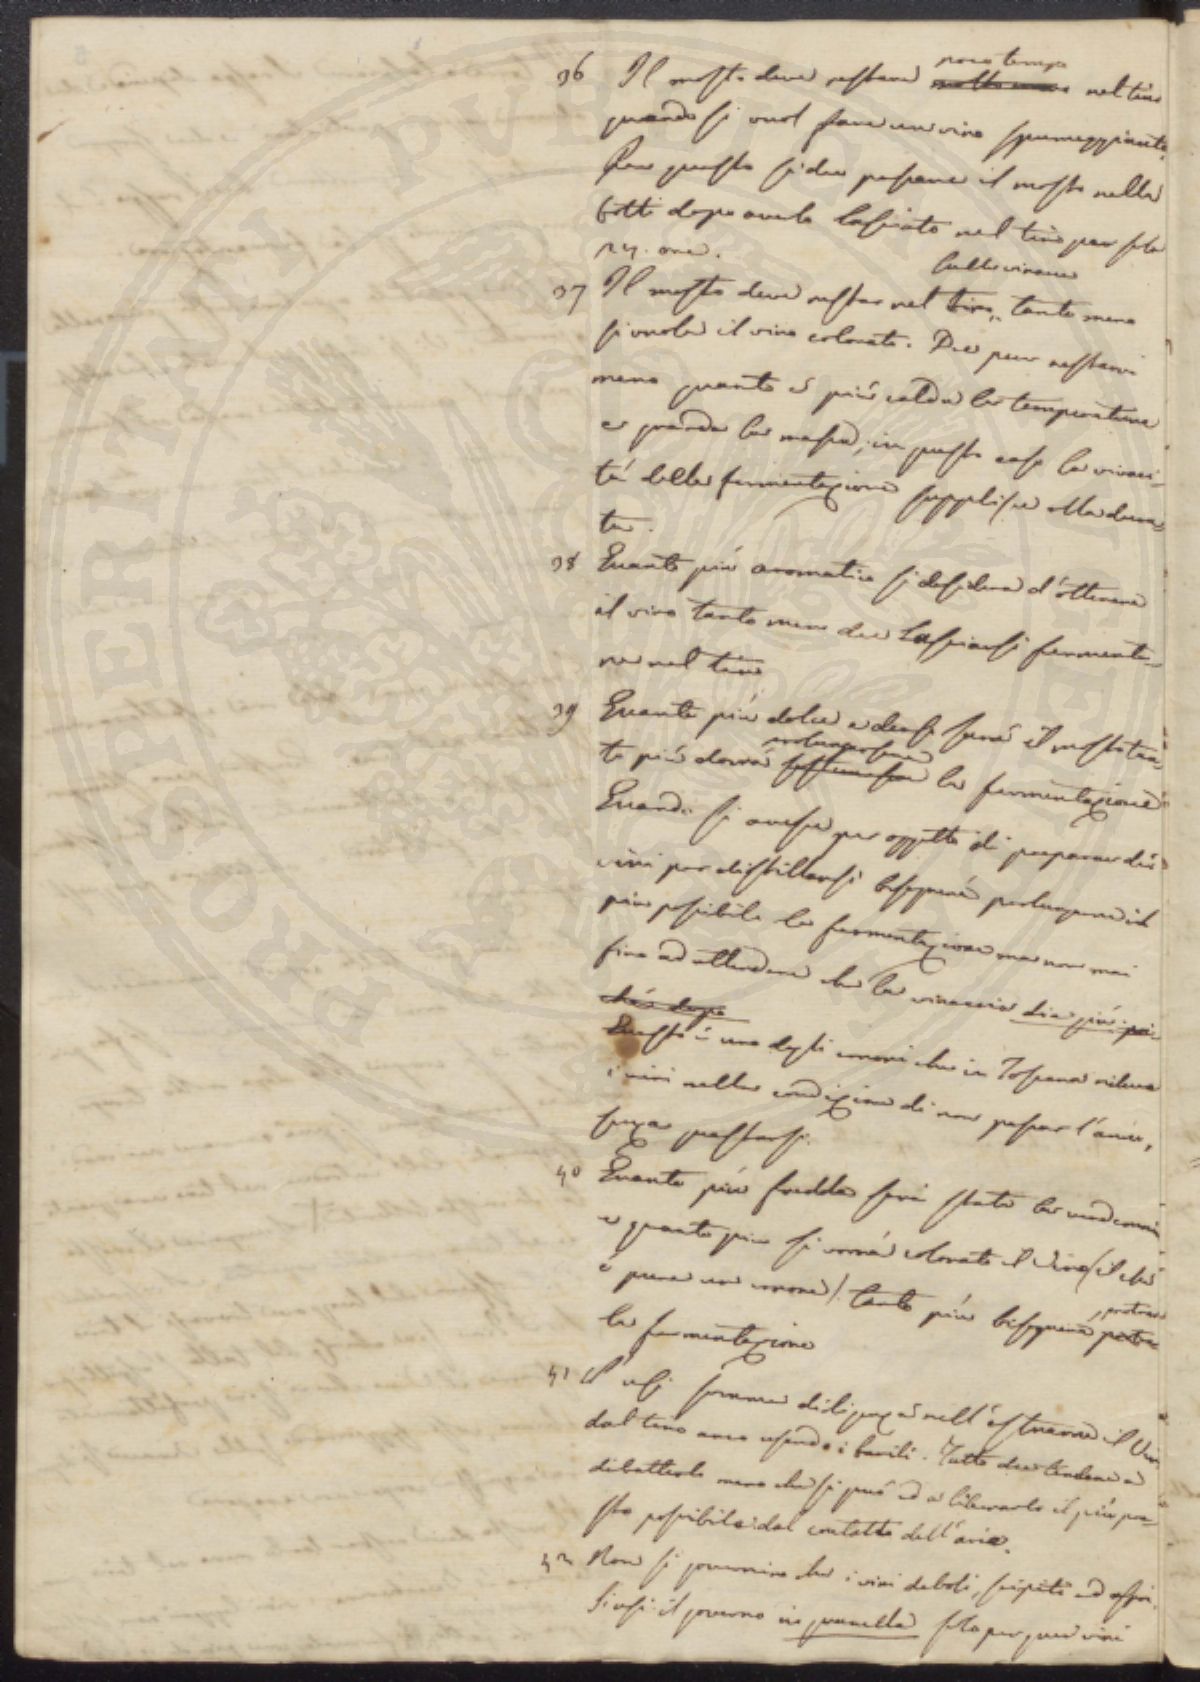 36 Il mosto deve restare poco tempo ~~molto meno~~ nel tino
quando si vuol fare un vino spumeggiante.
Per questo si dee passare il mosto nelle
botti dopo averlo lasciato nel tino per sole
24. ore.
37 Il mosto deve restar nel tino sulle vinacce tanto meno
si vuole il vino colorato. Dee pur restarvi
meno quanto è più calda la temperatura
e grande la massa; in questo caso la vivaci-
tà della fermentazione supplisce alla dura-
ta.
38 Quanto più aromatico si desidera d'ottenere
il vino tanto meno dee lasciarsi fermenta-
re nel tino
39 Quanto più dolce e denso sarà il mosto tan-
to più dovrà prolungarsene la fermentazione
Quando si avesse per oggetto di preparar dei
vini per distillarsi bisognerà prolungare il
più possibile la fermentazione ma non mai
fino ad attendere che la vinaccia dia giù
~~ché dopo~~
Questo è uno degli errori che in Toscana riduce
i vini nella condizione di non passar l'anno,
senza guastarsi.
40 Quanto più fredda sarà stata la vendemmia
e quanto più si vorrà colorato il vino (il che
è pure un errore) tanto più bisognerà protrarre
la fermentazione
41 Si usi somma diligenza nell'estrarre il vino
dal tino anco usando i barili. Tutto dee tendere a
dibatterlo meno che si può ed a liberarlo il più pre-
sto possibile dal contatto dell'aria.
42 Non si governino che i vini deboli, scipiti ed aspri.
Si usi il governo in granella solo per quei vini